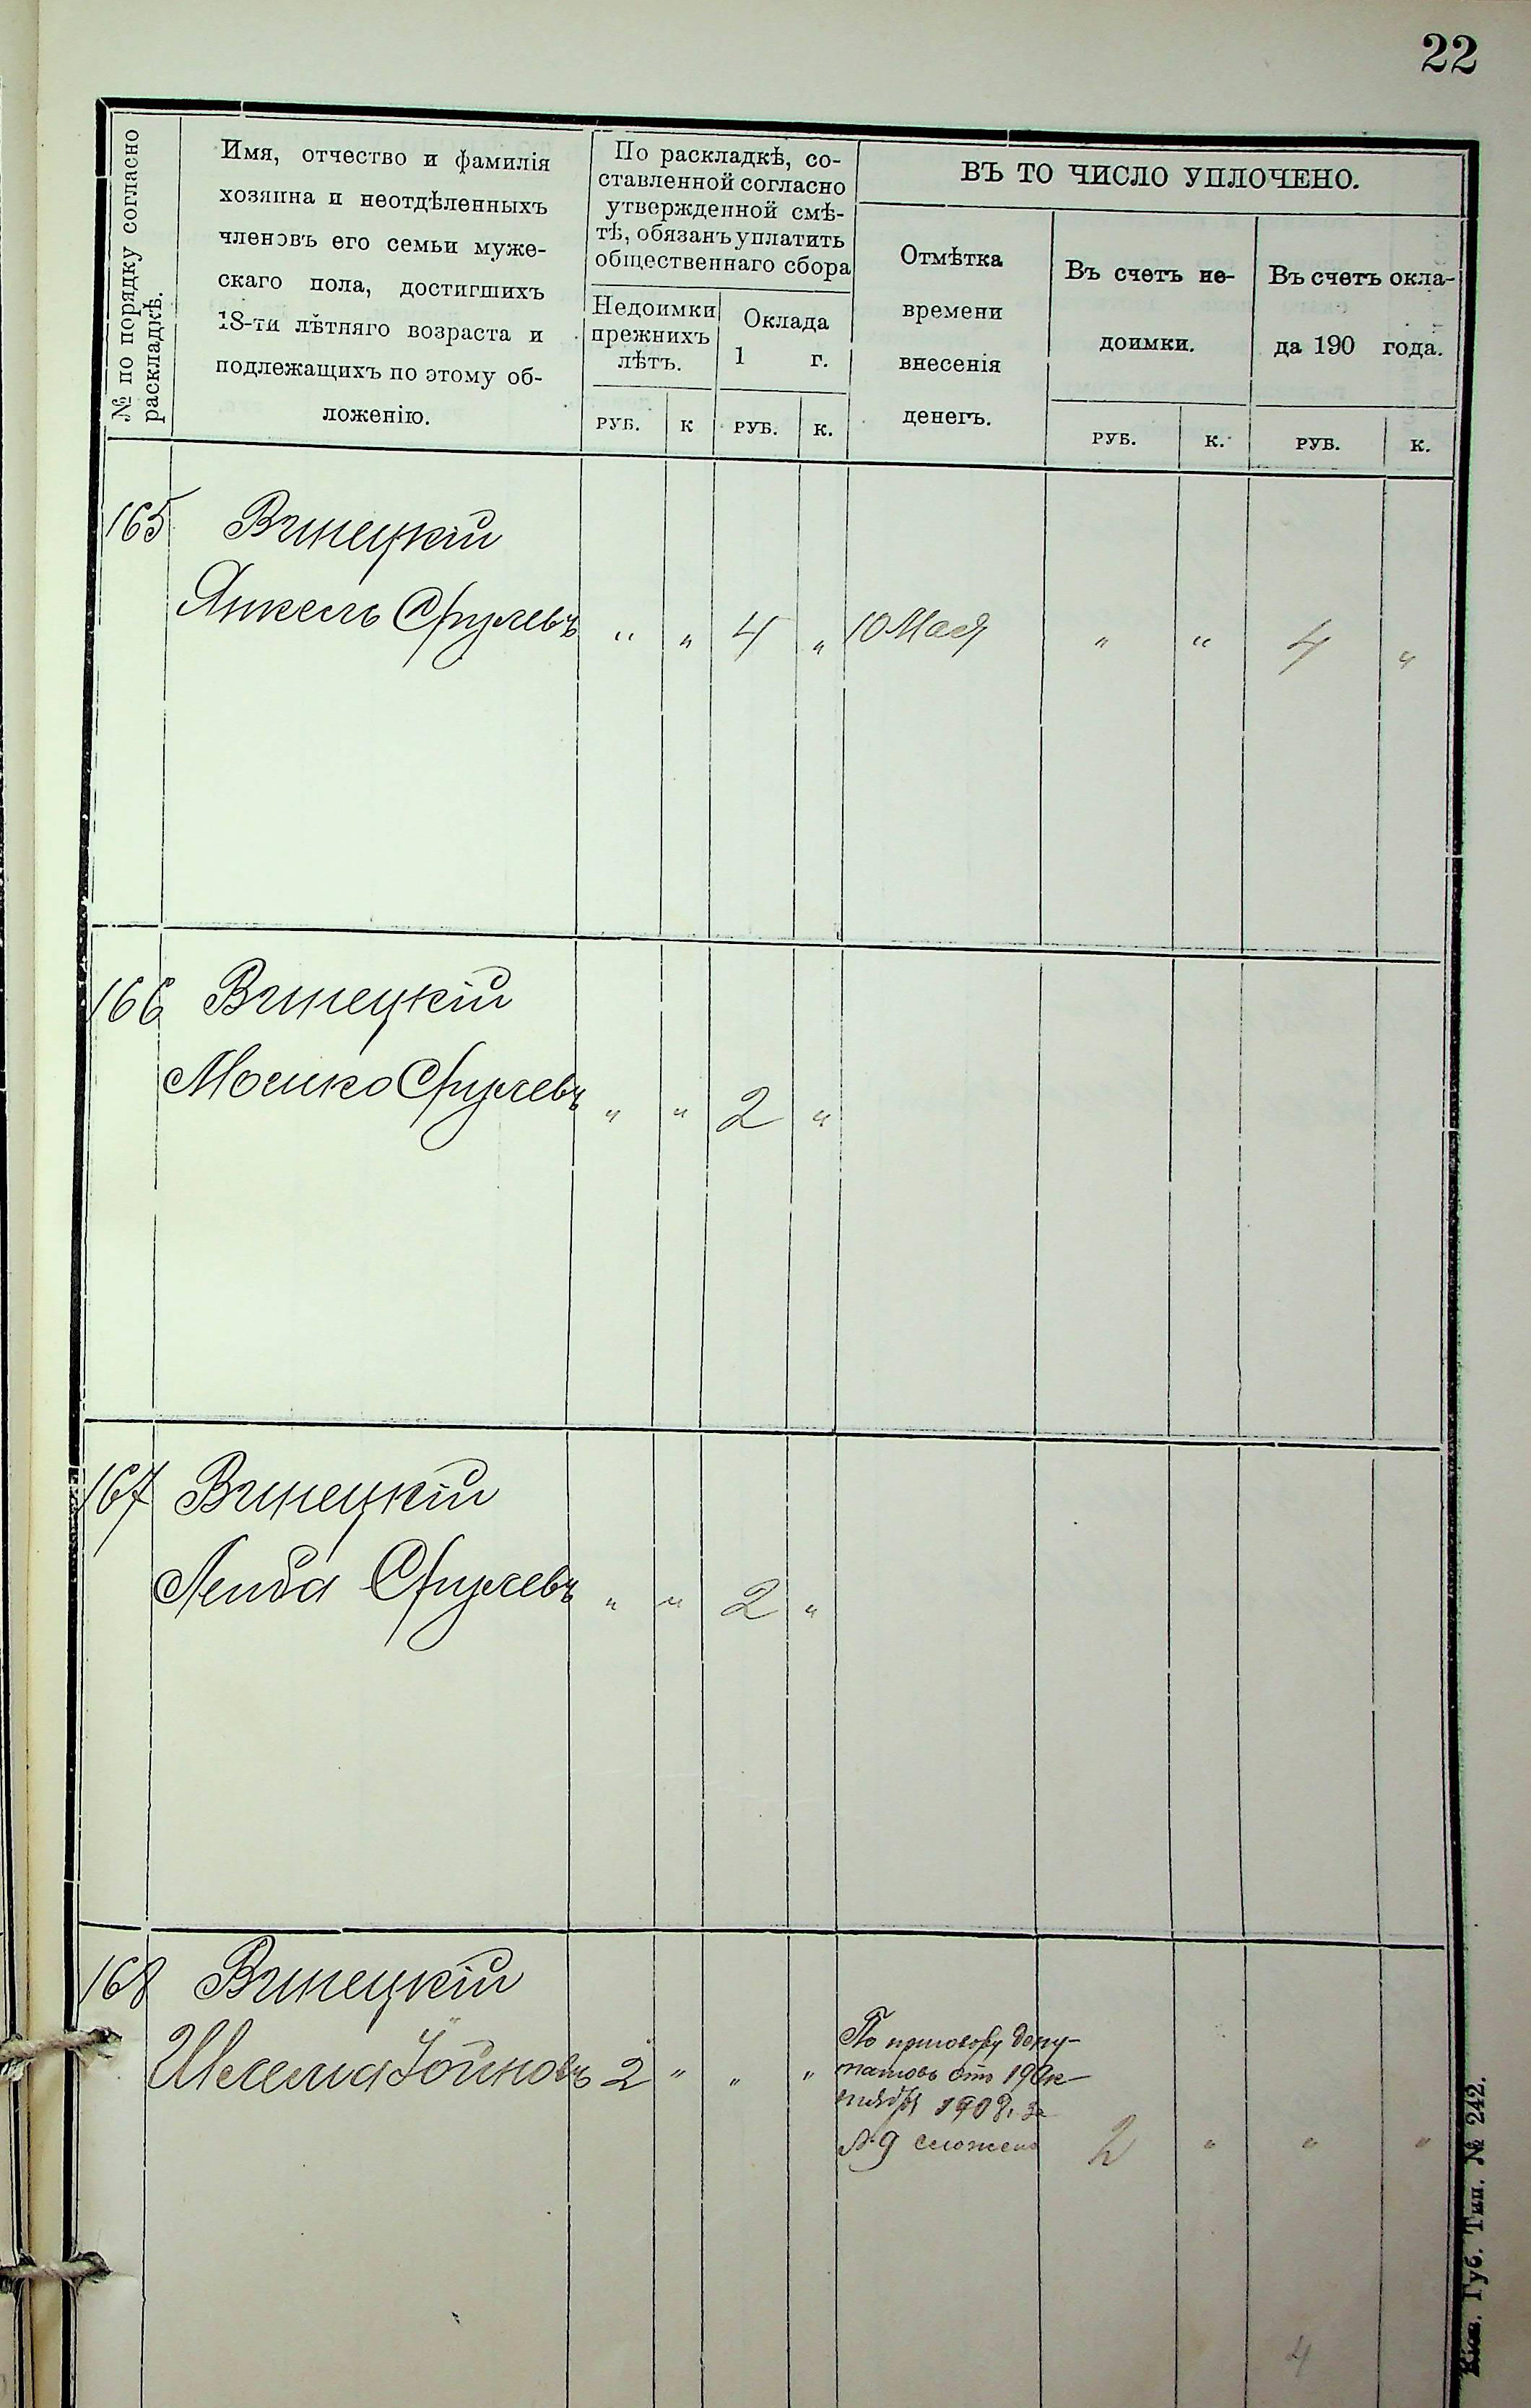 22
№ по порядку согласно
раскладкѣ.
Имя, отчество и фамилія
хозяина и неотдѣленныхъ
членовъ его семьи муже-
скаго пола, достигшихъ
18-ти лѣтняго возраста и
подлежащихъ по этому об-
ложенію.
По раскладкѣ, со-
ставленной согласно
утвержденной смѣ-
тѣ, обязанъ уплатить
общественнаго сбора
Недоимки
прежнихъ
лѣтъ.
Оклада
1 г.
РУБ. К РУБ. К.
ВЪ ТО ЧИСЛО УПЛОЧЕНО.
Отмѣтка
времени
внесенія
денегъ.
Въ счетъ не-
доимки.
Въ счетъ окла-
да 190 года.
РУБ. К. РУБ. К.
165 Винецкій
Янкель Срулевъ " " 4 " 10 Мая " " 4 "
166 Винецкій
Мошко Срулевъ " " 2 "
167 Винецкій
Лейба Срулевъ " " 2 "
168 Винецкій
Шлема Іойновъ 2 " " "
По приговору депу-
татовъ отъ 19 Ок-
тября 1908 г. за
№ 9 сложено 2 " " "
4
Кіев. Губ. Тип. № 242.